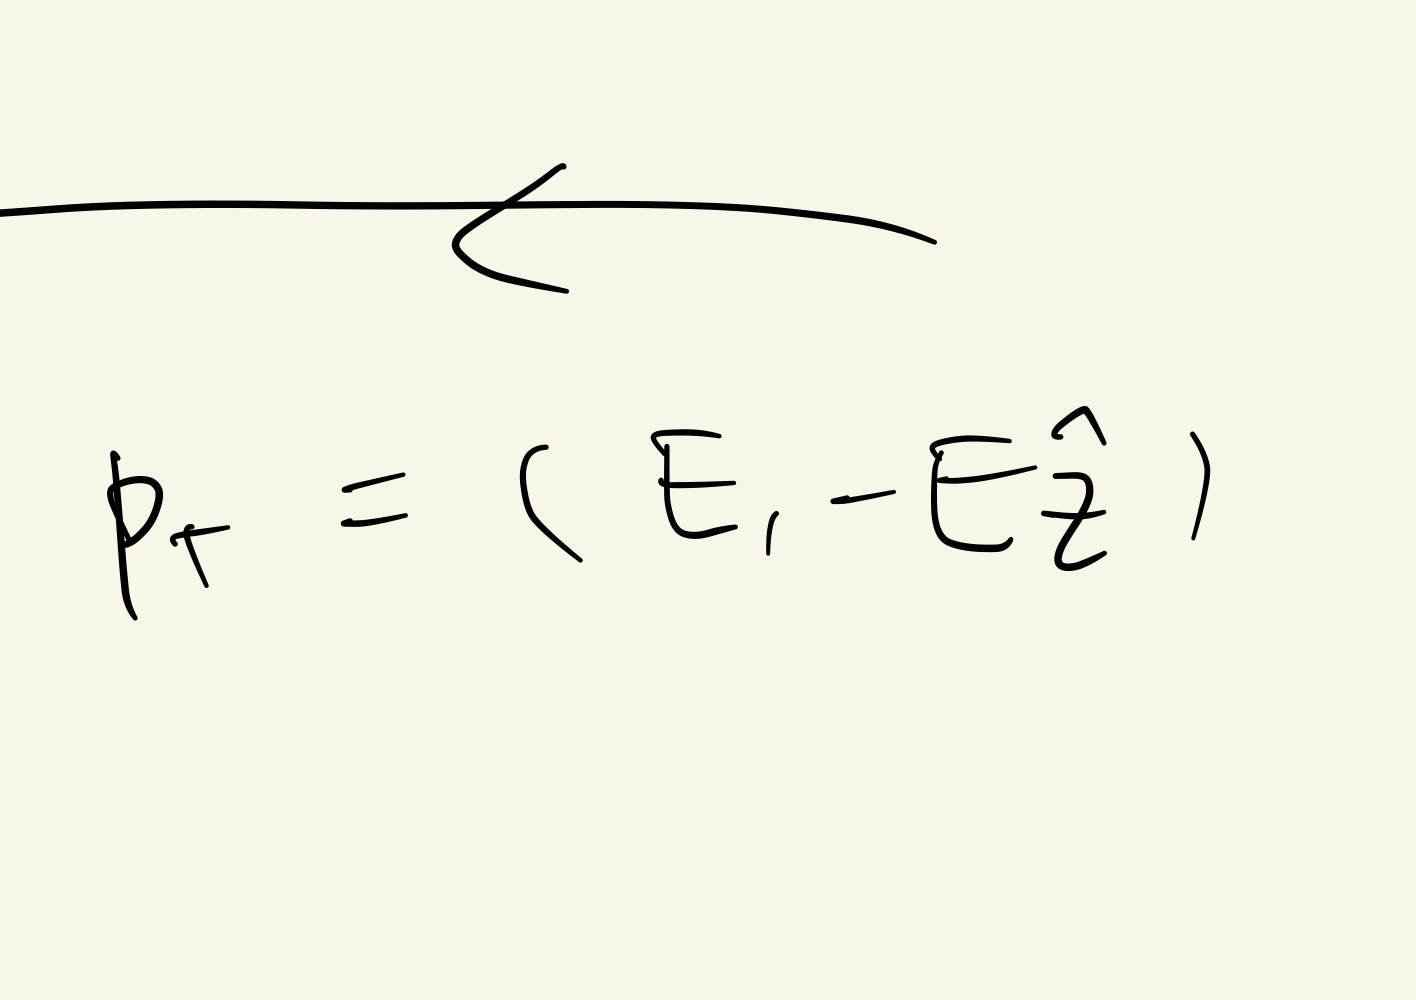 p_T = ( E, -Eẑ )